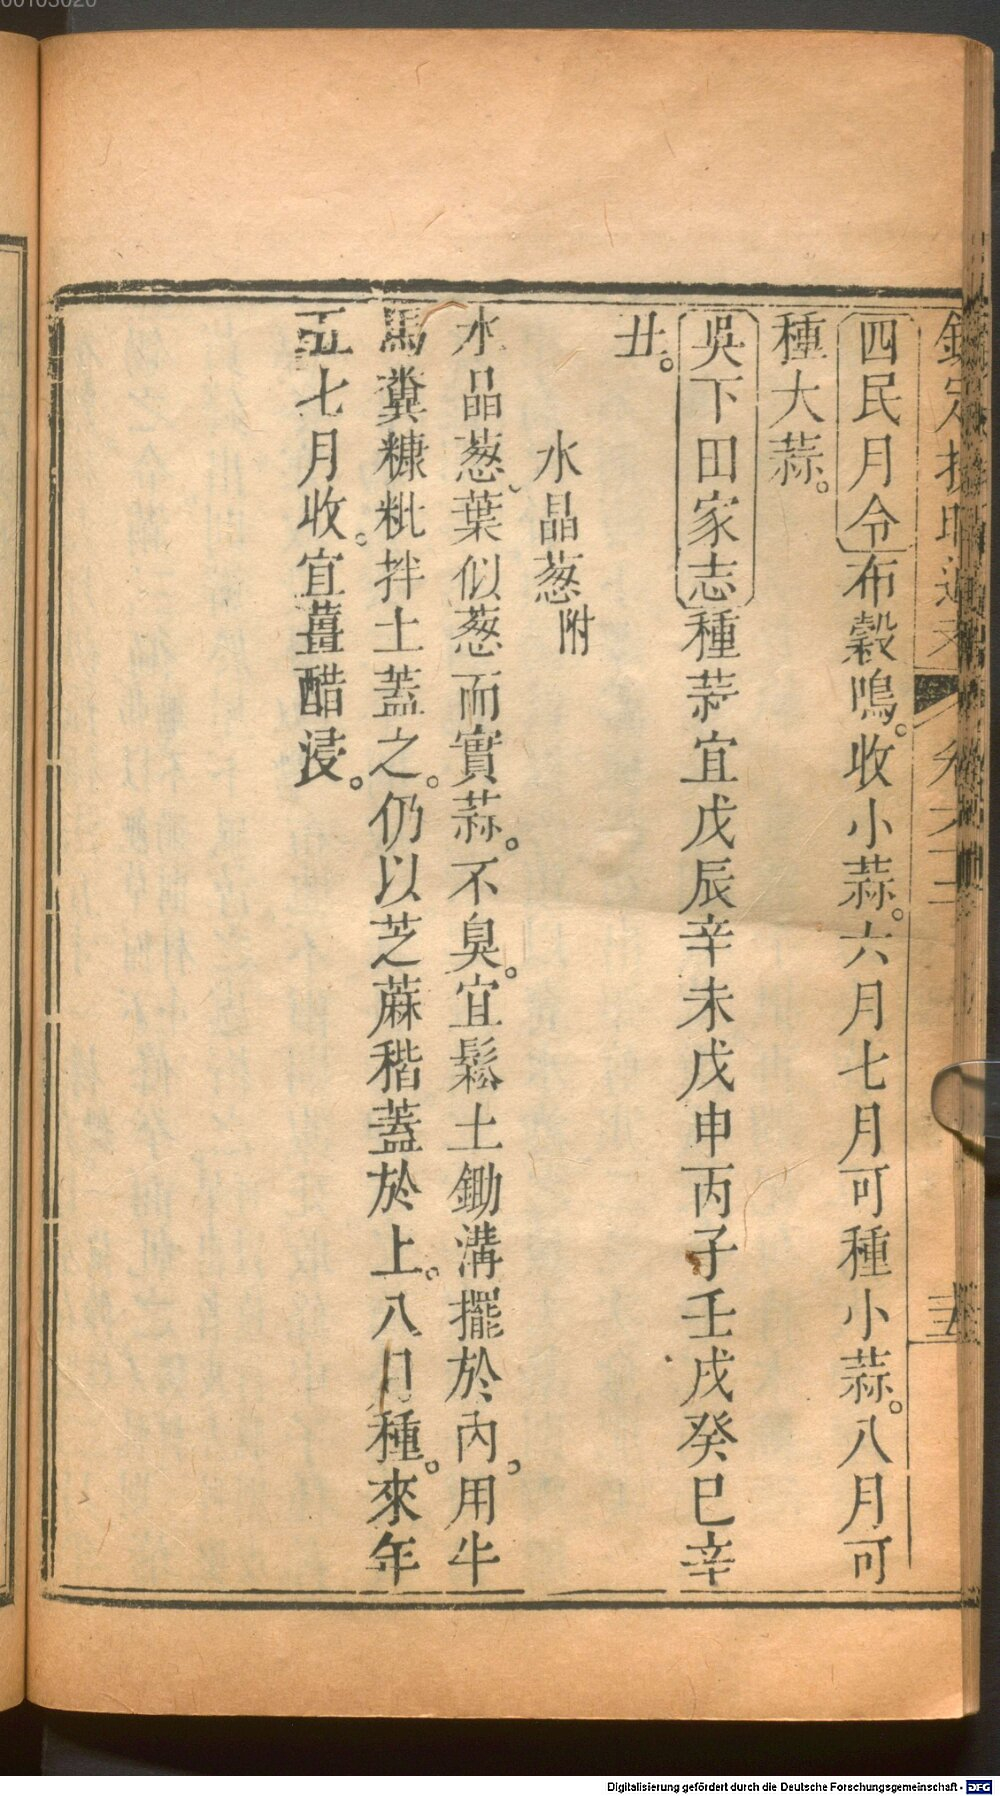 00103020
欽定授時通考 卷六十二
四民月令布穀鳴。收小蒜。六月七月可種小蒜。八月可
種大蒜。
吳下田家志種蒜宜戊辰辛未戊申丙子壬戌癸巳辛
丑。
水晶葱附
水晶葱、葉似葱而實蒜。不臭。宜鬆土鋤溝擺於內。用牛
馬糞糠粃拌土蓋之。仍以芝蔴稭蓋於上。八月種。來年
五七月收。宜薑醋浸。
Digitalisierung gefördert durch die Deutsche Forschungsgemeinschaft - DFG